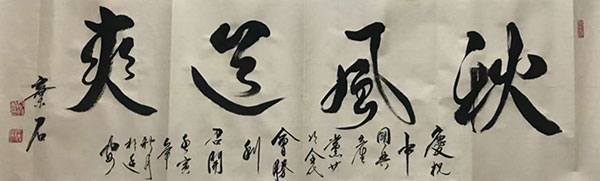 秋風送爽
慶祝
中
國共
產
黨廿
會勝
利
召開
壬寅
年
秋月
於延
安
石